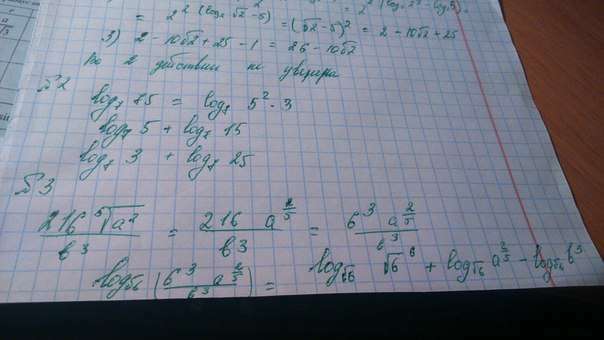 = 2^2 (log₂ √2 - 5) = (√2 - 5)^2 = 2 - 10√2 + 25
3) 2 - 10√2 + 25 - 1 = 26 - 10√2
Во 2 действии не уверена
№2
log₇ 75 = log₇ 5^2 · 3
log₇ 5 + log₇ 15
log₇ 3 + log₇ 25
№3
216 ⁵√a^2 / b^3 = 216 a^(2/5) / b^3 = 6^3 a^(2/5) / b^3
log_√6 (6^3 a^(2/5) / b^3) = log_√6 √6^6 + log_√6 a^(2/5) - log_√6 b^3